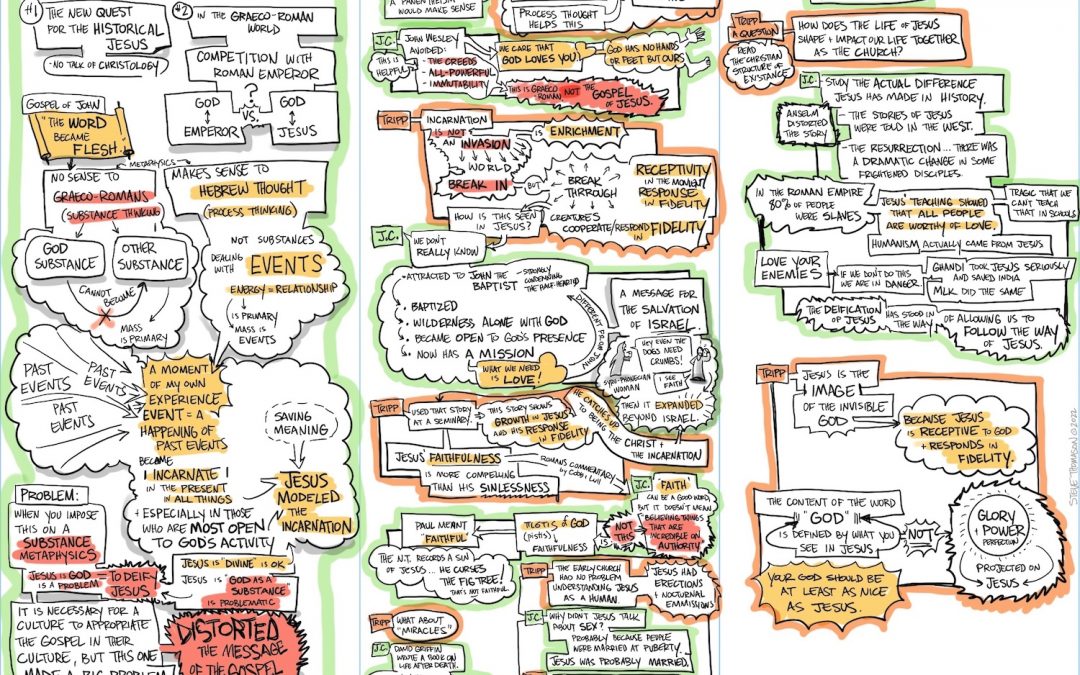 #1
THE NEW QUEST
FOR THE HISTORICAL
JESUS
-NO TALK OF CHRISTOLOGY
#2
IN THE GRAECO-ROMAN
WORLD
COMPETITION WITH
ROMAN EMPEROR
GOD
EMPEROR
?
VS.
GOD
JESUS
GOSPEL OF JOHN
"THE WORD
BECAME
FLESH."
METAPHYSICS
NO SENSE TO
GRAECO-ROMANS
(SUBSTANCE THINKING)
GOD
SUBSTANCE
OTHER
SUBSTANCE
CANNOT
BECOME
MASS
IS PRIMARY
MAKES SENSE TO
HEBREW THOUGHT
(PROCESS THINKING)
NOT SUBSTANCES
DEALING
WITH
EVENTS
ENERGY=RELATIONSHIP
IS PRIMARY
MASS IS
EVENTS
PAST
EVENTS
PAST
EVENTS
PAST
EVENTS
A MOMENT
OF MY OWN
EXPERIENCE
EVENT = A
HAPPENING OF
PAST EVENTS
BECAME
INCARNATE
IN THE PRESENT
IN ALL THINGS
+ ESPECIALLY IN THOSE
WHO ARE MOST OPEN
TO GOD'S ACTIVITY
SAVING
MEANING
JESUS
MODELED
THE
INCARNATION
PROBLEM:
WHEN YOU IMPOSE
THIS ON A
SUBSTANCE
METAPHYSICS
JESUS IS GOD
IS A PROBLEM
TO DEIFY
JESUS
JESUS IS "DIVINE" IS OK
JESUS IS "GOD AS A
SUBSTANCE"
IS PROBLEMATIC
IT IS NECESSARY FOR A
CULTURE TO APPROPRIATE
THE GOSPEL IN THEIR
CULTURE, BUT THIS ONE
MADE A BIG PROBLEM
DISTORTED
THE MESSAGE
OF THE GOSPEL
A PANENTHEISM
WOULD MAKE SENSE
PROCESS THOUGHT
HELPS THIS
J.C.
THIS IS
HELPFUL
JOHN WESLEY
AVOIDED:
- THE CREEDS
- ALL-POWERFUL
- IMMUTABILITY
WE CARE THAT
GOD LOVES YOU.
GOD HAS NO HANDS
OR FEET BUT OURS
THIS IS GRAECO-
ROMAN, NOT THE
GOSPEL
OF JESUS.
TRIPP
INCARNATION
IS NOT
AN INVASION
WORLD
BREAK IN
BUT
IS ENRICHMENT
BREAK
THROUGH
CREATURES
COOPERATE/RESPOND
IN FIDELITY
RECEPTIVITY
IN THE MOMENT
RESPONSE
IN FIDELITY
HOW IS THIS SEEN
IN JESUS?
J.C.
WE DON'T
REALLY KNOW
• ATTRACTED TO JOHN THE
BAPTIST
- STRONGLY
CONDEMNING
THE HALF-HEARTED
• BAPTIZED
• WILDERNESS ALONE WITH GOD
• BECAME OPEN TO GOD'S PRESENCE
• NOW HAS A MISSION
WHAT WE NEED
IS LOVE!
DIFFERENT FROM JOHN
A MESSAGE FOR
THE SALVATION
OF ISRAEL.
HEY EVEN THE
DOGS NEED
CRUMBS!
SYRO-PHONECIAN
WOMAN
I SEE
FAITH
THEN IT EXPANDED
BEYOND ISRAEL.
TRIPP
USED THAT STORY
AT A SEMINARY.
THIS STORY SHOWS
GROWTH IN JESUS
AND HIS RESPONSE
IN FIDELITY
HE CATCHES UP
TO BEING
THE CHRIST +
THE INCARNATION
JESUS FAITHFULNESS
IS MORE COMPELLING
THAN HIS SINLESSNESS
ROMANS COMMENTARY
BY COBB + LULL
PAUL MEANT
"FAITHFUL"
OF GOD
(pistis)
FAITHFULNESS
J.C.
FAITH
CAN BE A GOOD WORD
BUT IT DOESN'T MEAN
BELIEVING THINGS
THAT ARE
INCREDIBLE ON
AUTHORITY
NOT
THIS
THE N.T. RECORDS A SIN
OF JESUS... HE CURSES
THE FIG TREE!
THAT'S NOT FAITHFUL
TRIPP
THE EARLY CHURCH
HAD NO PROBLEM
UNDERSTANDING JESUS
AS A HUMAN.
JESUS HAD
ERECTIONS
+ NOCTURNAL
EMMISSIONS
TRIPP
WHAT ABOUT
"MIRACLES"
J.C.
WHY DIDN'T JESUS TALK
ABOUT SEX?
PROBABLY BECAUSE PEOPLE
WERE MARRIED AT PUBERTY.
JESUS WAS PROBABLY MARRIED.
J.C.
DAVID GRIFFIN
WROTE A BOOK ON
LIFE AFTER DEATH.
TRIPP
A QUESTION
HOW DOES THE LIFE OF JESUS
SHAPE + IMPACT OUR LIFE TOGETHER
AS THE CHURCH?
READ
THE CHRISTIAN
STRUCTURE OF
EXISTANCE
J.C.
-STUDY THE ACTUAL DIFFERENCE
JESUS HAS MADE IN HISTORY.
- THE STORIES OF JESUS
WERE TOLD IN THE WEST.
- THE RESURRECTION... THERE WAS
A DRAMATIC CHANGE IN SOME
FRIGHTENED DISCIPLES.
ANSELM
DISTORTED
THE STORY
IN THE ROMAN EMPIRE
80% OF PEOPLE
WERE SLAVES
JESUS' TEACHING SHOWED
THAT ALL PEOPLE
ARE WORTHY OF LOVE.
TRAGIC THAT WE
CAN'T TEACH
THAT IN SCHOOLS
HUMANISM ACTUALLY CAME FROM JESUS
LOVE YOUR
ENEMIES
IF WE DON'T DO THIS
WE ARE IN DANGER.
GHANDI TOOK JESUS SERIOUSLY
AND SAVED INDIA
MLK DID THE SAME
THE DEIFICATION
OF JESUS
HAS STOOD IN
THE WAY
OF ALLOWING US TO
FOLLOW THE WAY
OF JESUS.
TRIPP
JESUS IS THE
IMAGE
OF THE INVISIBLE
GOD
BECAUSE JESUS
IS RECEPTIVE TO GOD
+ RESPONDS IN
FIDELITY.
THE CONTENT OF THE WORD
"GOD"
IS DEFINED BY WHAT YOU
SEE IN JESUS
NOT
GLORY
+ POWER
PERFECTION
PROJECTED ON
JESUS
YOUR GOD SHOULD BE
AT LEAST AS NICE
AS JESUS.
STEVE THOMASON © 2022